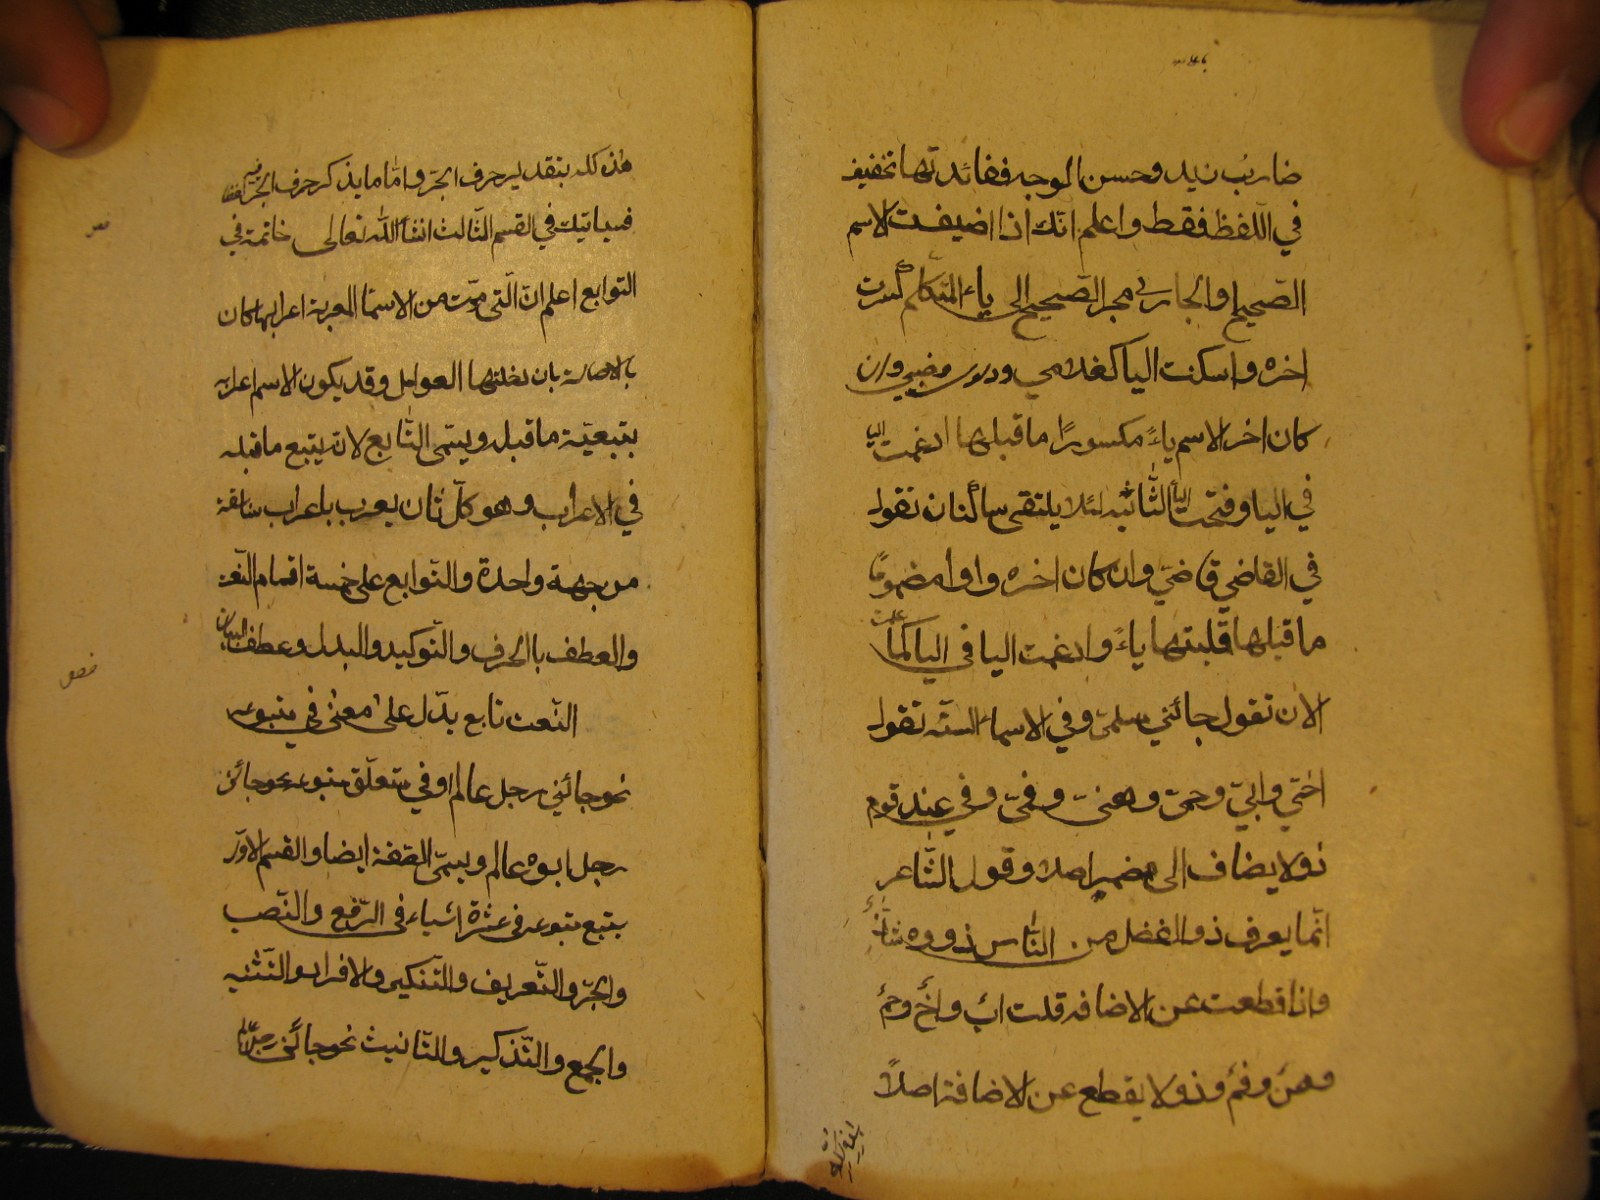 ضارب زيد وحسن الوجه ففائدتها تخفيف
في اللّفظ فقط واعلم انّك اذا اضيفت الاسم
الصّحيح او الجاري مجر الصّحيح الى ياء المتكلّم كسرت
اخره واسكنت اليا كغلامي ودلوي وظبيي وان
كان اخر الاسم ياءً مكسورًا ما قبلها ادغمت اليا
في اليا وفتحت اليا الثّانيه لئلا يلتقى ساكنان تقول
في القاضي قاضيّ وان كان اخره واوا مضمومًا
ما قبلها قلبتها ياءً وادغمت اليا في اليا كما عملت
الان تقول جائني مسلميّ وفي الاسماء الستّه تقول
اخي وابي وحمي وهني وفيّ وفي عند قوم
ذو لا يضاف الى مضمر اصلا وقول الشّاعر
انّما يعرف ذو الفضل من النّاس ذووه شاذّ
واذا قطعت عن الاضافه قلت اب واخ وحم
وهن وفم وذو لا يقطع عن الاضافة اصلاً
هذا كله بتقدير حرف الجرّ وامّا ما يذكر حرف الجرّ فيه لفظا
فسياتيك في القسم الثّالث انشاء الله تعالى خاتمة في
التوابع اعلم انّ الّتي مرّت من الاسما المعربة اعرابها كان
بالاصالة بان دخلتها العوامل وقد يكون الاسم اعرابه
بتبعيّة ما قبله ويسمّى التّابع لانه يتبع ما قبله
في الاعراب وهو كلّ ثان يعرب باعراب سابقه
من جهة واحدة والتّوابع على خمسة اقسام النّعت
والعطف باالحرف والتّوكيد والبدل وعطف البيان
النّعت تابع يدّل على معنى في متبوعه
نحو جائني رجل عالم او في متعلّق متبوعه نحو جائني
رجل ابوه عالم ويسمّى الصّفة ايضا والقسم الاوّل
يتبع متبوعه في عشرة اشياء في الرّفع والنّصب
والجرّ والتّعريف والتّنكير والافراد والتّثنيه
والجمع والتّذكير والتّانيث نحو جائني رجل عالم